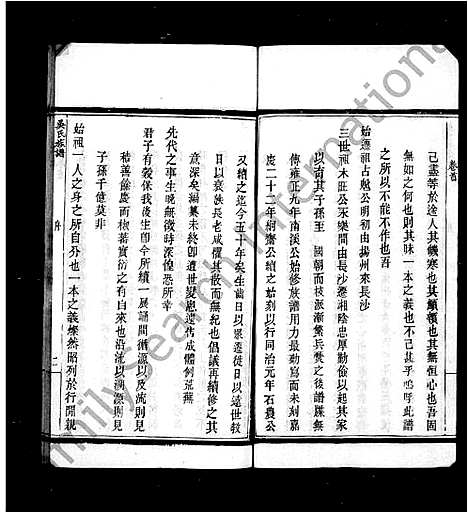 卷首
己盡等於途人其饑寒也吾其顛頓也其無恆心也吾固
無如之何也則其昧一本之義也不已甚乎嗚呼此譜
之所以不能不作也
始遷祖古魁公明初由揚州來長沙
三世祖木旺公永樂間由長沙遷湘陰忠厚勤儉以起其家
以有其子孫至 國朝而枝派漸繁兵燹之後譜牒無
傳雍正九年南溪公始修族譜用力最勤寫而未刻嘉
慶二十二年桐齋公續之始刻以行同治元年石農公
又續之迄今五十年矣生齒日以衆遷徙日以遠世教
日以衰族長老咸懼其散而無紀也倡議再續修之其
意深矣編纂未終卽遭世變應遠代成體例荒蕪
先代之事生晚無徵時深惶恐所幸
君子有穀保我後生卽今所續一展誦間循源以及流則見
積善餘慶而椒蕃實衍之有自來也沿流以溯源則見
子孫千億莫非
始祖一人之身之所自分也一本之義燦然昭列於行間親
吳氏族譜
序
二
FamilySearch International